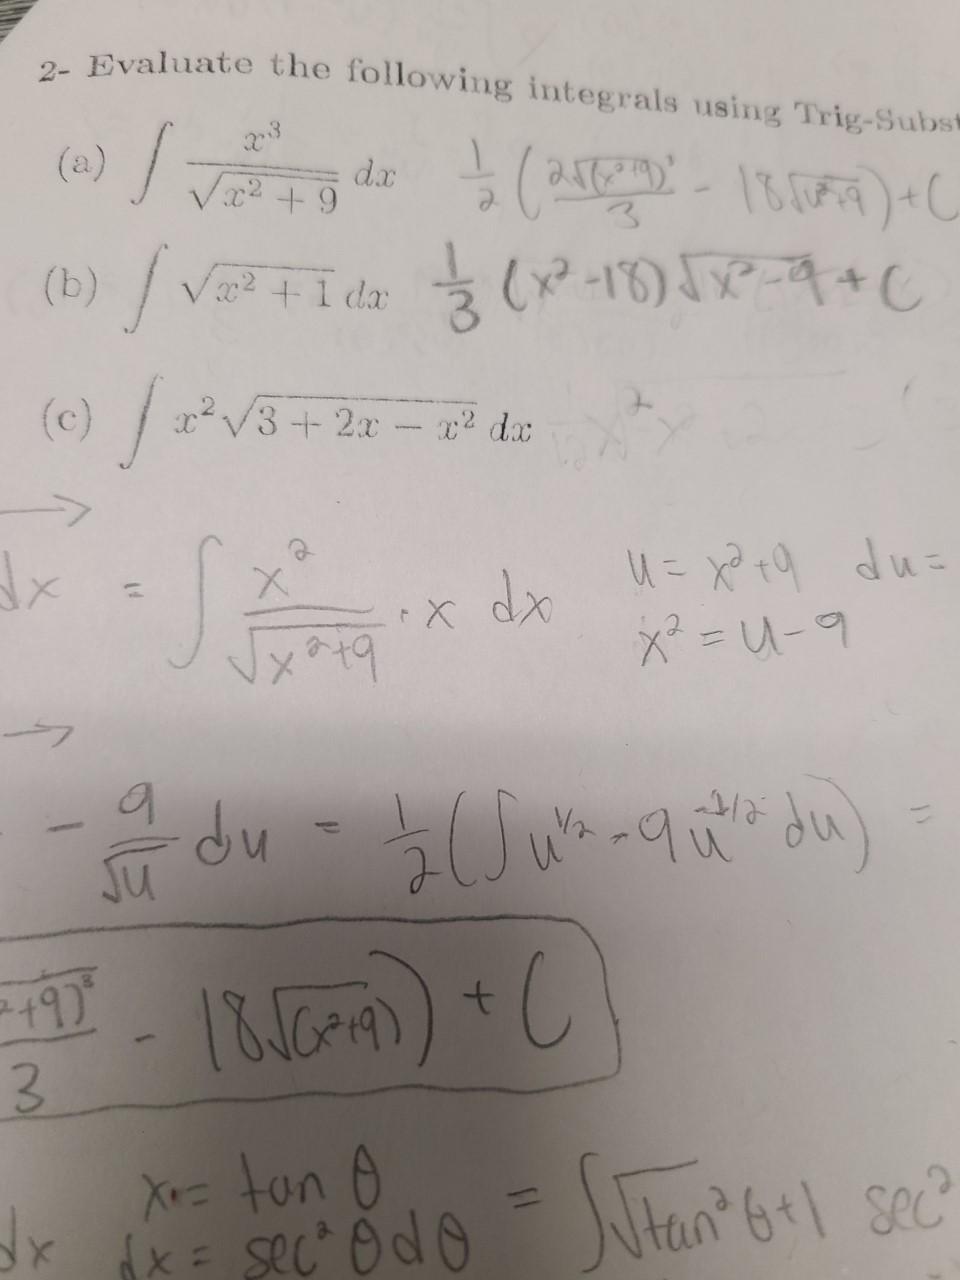 2- Evaluate the following integrals using Trig-Subst
(a) ∫ x³ / √(x² + 9) dx   1/2 ( 2√(x²+9)³ / 3 - 18√(x²+9) ) + C
(b) ∫ √(x² + 1) dx   1/3 (x²-18) √(x²-9) + C
(c) ∫ x² √(3 + 2x − x²) dx
→
dx = ∫ x² / √(x²+9) · x dx   u = x²+9   du =
x² = u-9
→
- 9/√u du = 1/2 ( ∫ u^1/2 - 9u^-1/2 du ) =
²+9)³ / 3 - 18√(x²+9) ) + C
x = tan θ
dx   dx = sec² θ dθ   = ∫ √(tan² θ+1) sec²